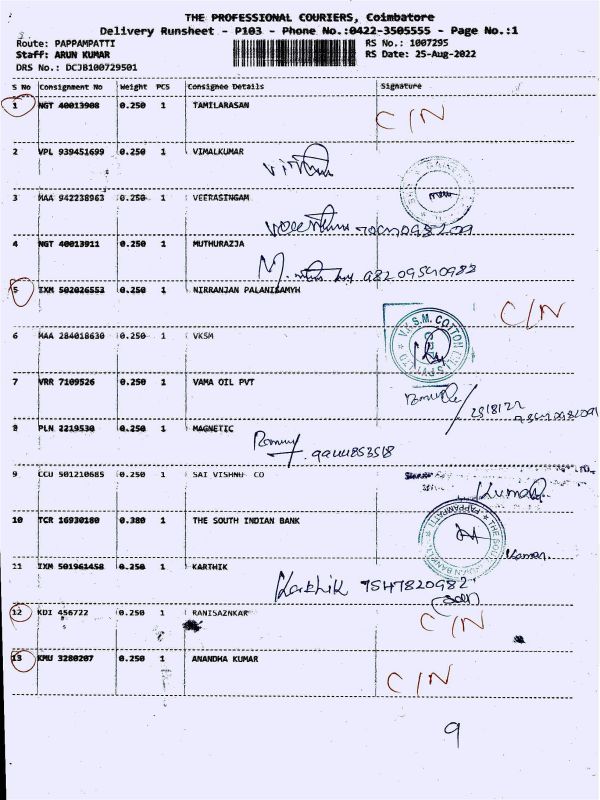 THE PROFESSIONAL COURIERS, Coimbatore
Delivery Runsheet - P103 - Phone No.:0422-3505555 - Page No.:1
Route: PAPPAMPATTI RS No.: 1007295
Staff: ARUN KUMAR RS Date: 25-Aug-2022
DRS No.: DCJB100729501
S No Consignment No Weight PCS Consignee Details Signature
1 NGT 40013908 0.250 1 TAMILARASAN C/N
2 VPL 939451699 0.250 1 VIMALKUMAR
3 MAA 942238963 0.250 1 VEERASINGAM
4 NGT 40013911 0.250 1 MUTHURAZJA
9820950988
5 IXM 502026553 0.250 1 NIRRANJAN PALANISAMYH C/N
6 MAA 284018630 0.250 1 VKSM
V.K.S.M. COTTON
7 VRR 7109526 0.250 1 VAMA OIL PVT
8 PLN 2219530 0.250 1 MAGNETIC
9 CCU 501210685 0.250 1 SAI VISHNU CO
Kumar
10 TCR 16930180 0.380 1 THE SOUTH INDIAN BANK
PAPPAMPATTI
11 IXM 501961458 0.250 1 KARTHIK
Karthik 9547820982
(Son)
12 KDI 456722 0.250 1 RANISAZNKAR C/N
13 KMU 3280207 0.250 1 ANANDHA KUMAR C/N
9